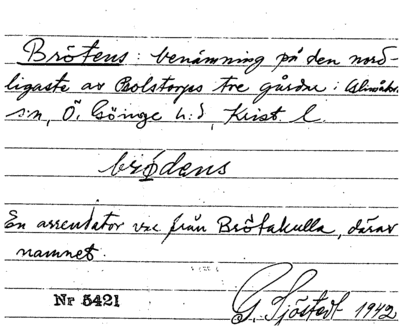 Brötens: benämning på den nord-
ligaste av Bolstorps tre gårdar i Glimåkr.
s:n, Ö. Göinge h:d, Krist l.
brödens
En arrendator var från Brötakulla, därav
namnet.
Nr 5421
G. Sjöstedt 1942